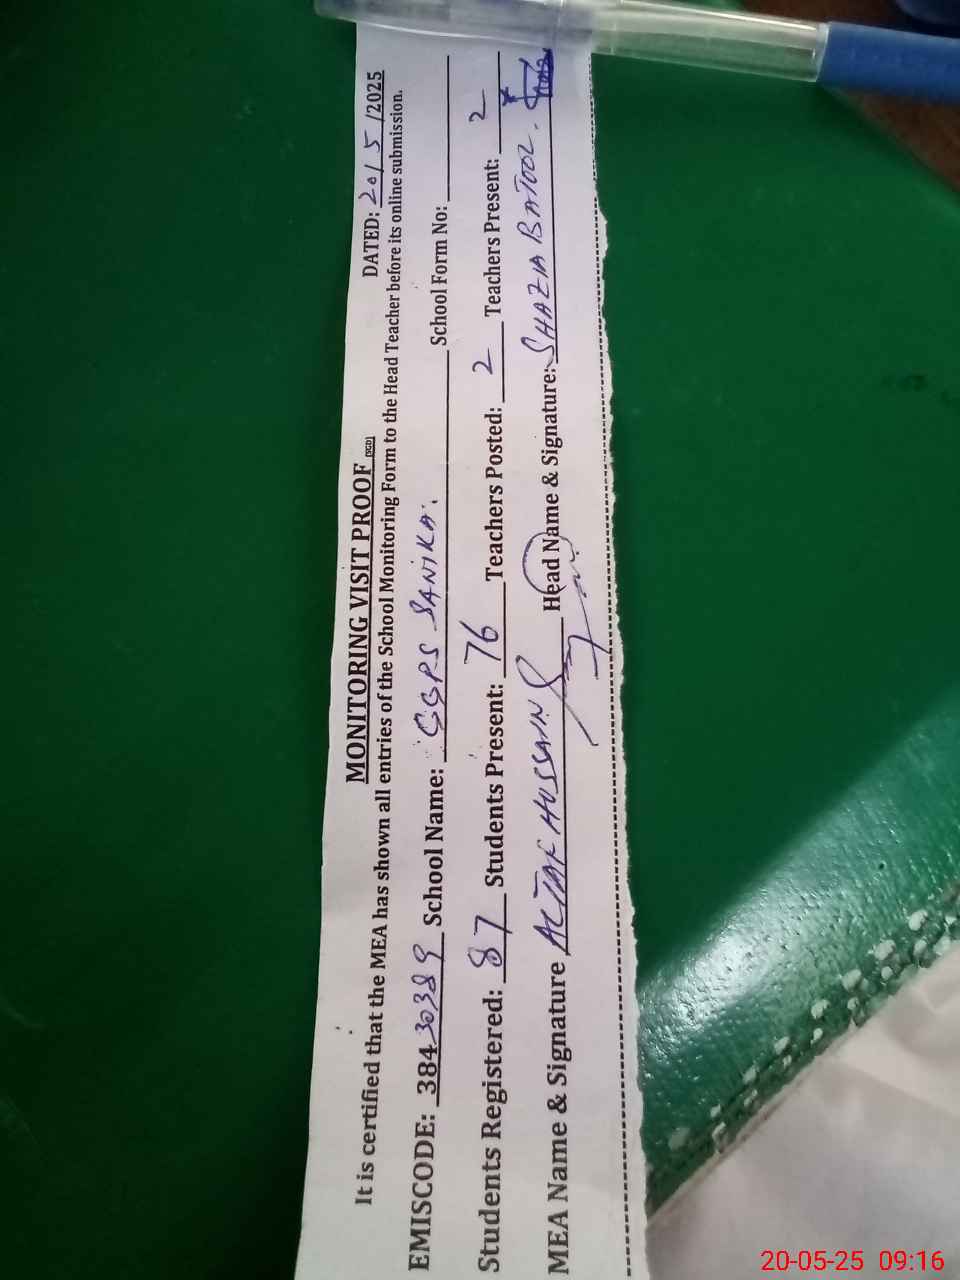 MONITORING VISIT PROOF (SGD) DATED: 20/5/2025
It is certified that the MEA has shown all entries of the School Monitoring Form to the Head Teacher before its online submission.
EMISCODE: 38430389 School Name: GGPS SANIKA. School Form No:
Students Registered: 87 Students Present: 76 Teachers Posted: 2 Teachers Present: 2
MEA Name & Signature ALTAF HUSSAIN Head Name & Signature: SHAZIA BATOOL.
20-05-25 09:16